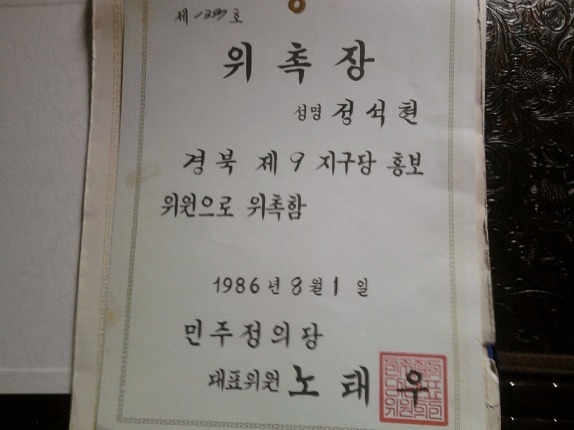 제 1387 호
위 촉 장
성명 정석현
경북 제 9 지구당 홍보
위원으로 위촉함
1986 년 8 월 1 일
민주정의당
대표위원 노태우